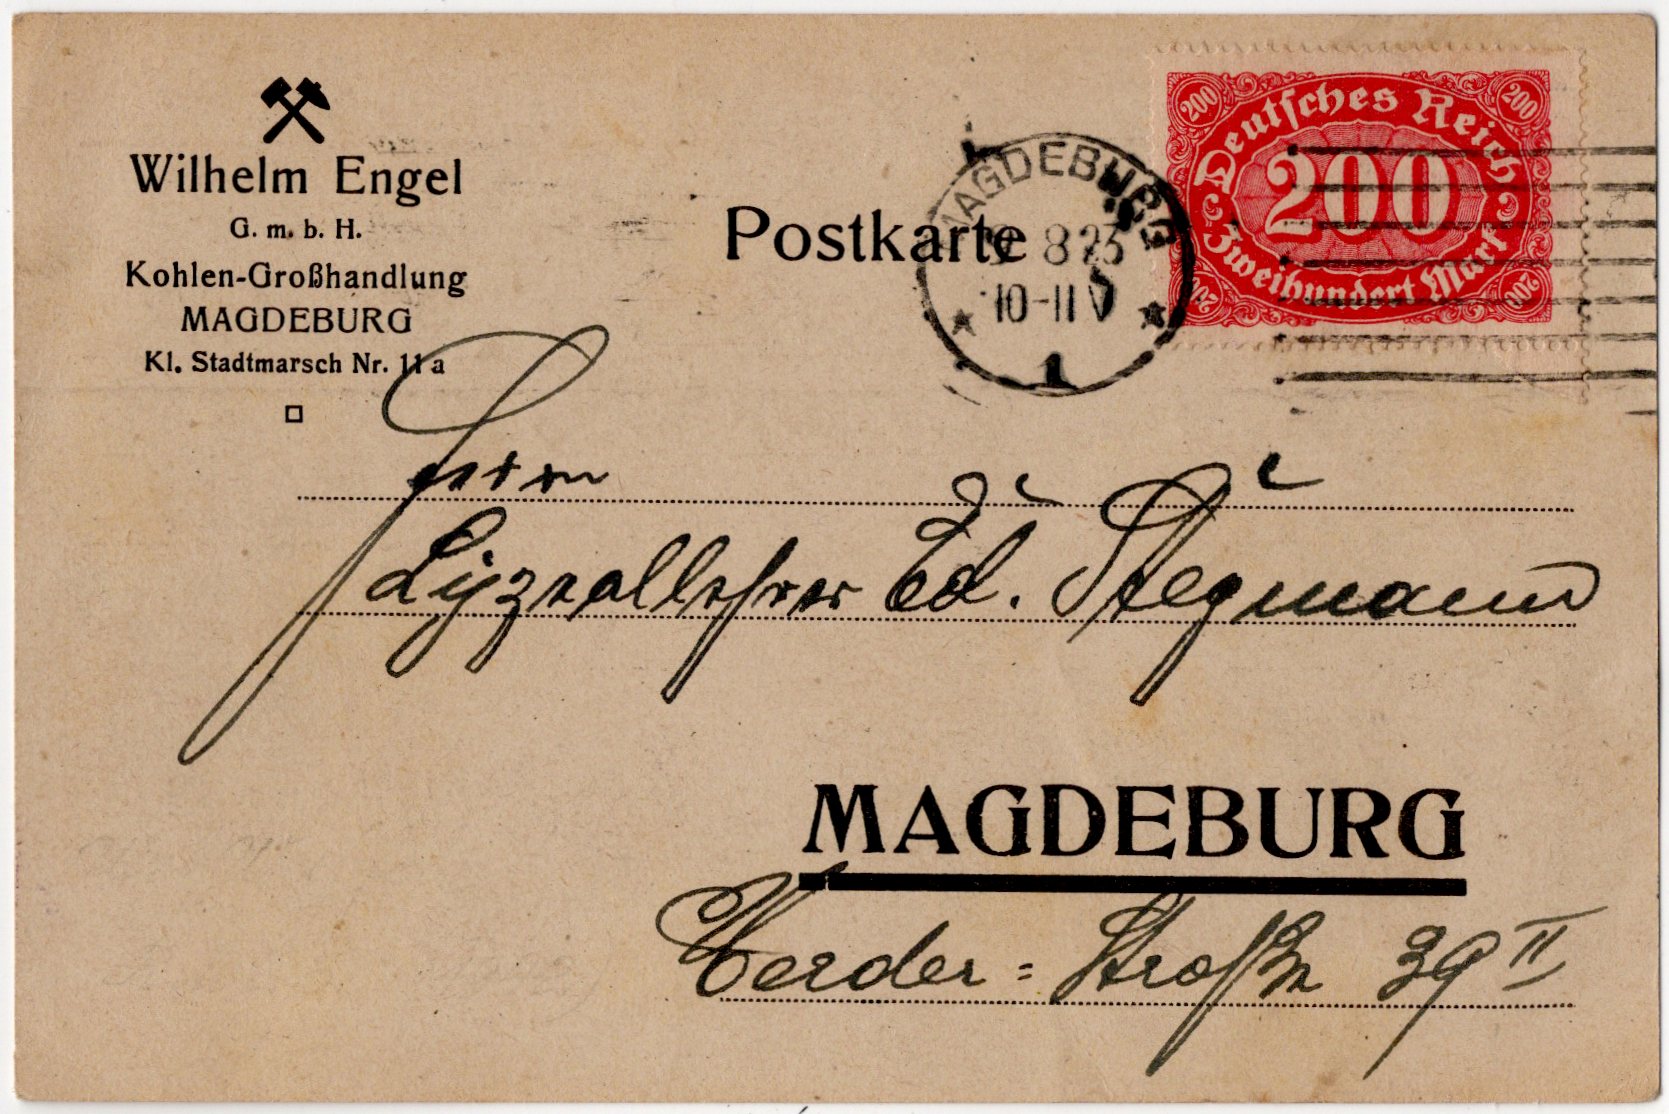 Wilhelm Engel
G. m. b. H.
Kohlen-Großhandlung
MAGDEBURG
Kl. Stadtmarsch Nr. 11a
Postkarte
MAGDEBURG
8 23
10-11 V
1
Deutsches Reich
200 200
200
200 200
Zweihundert Mark
Herrn
Lyzeallehrer Ed. Stegmann
MAGDEBURG
Werder=Straße 39 II